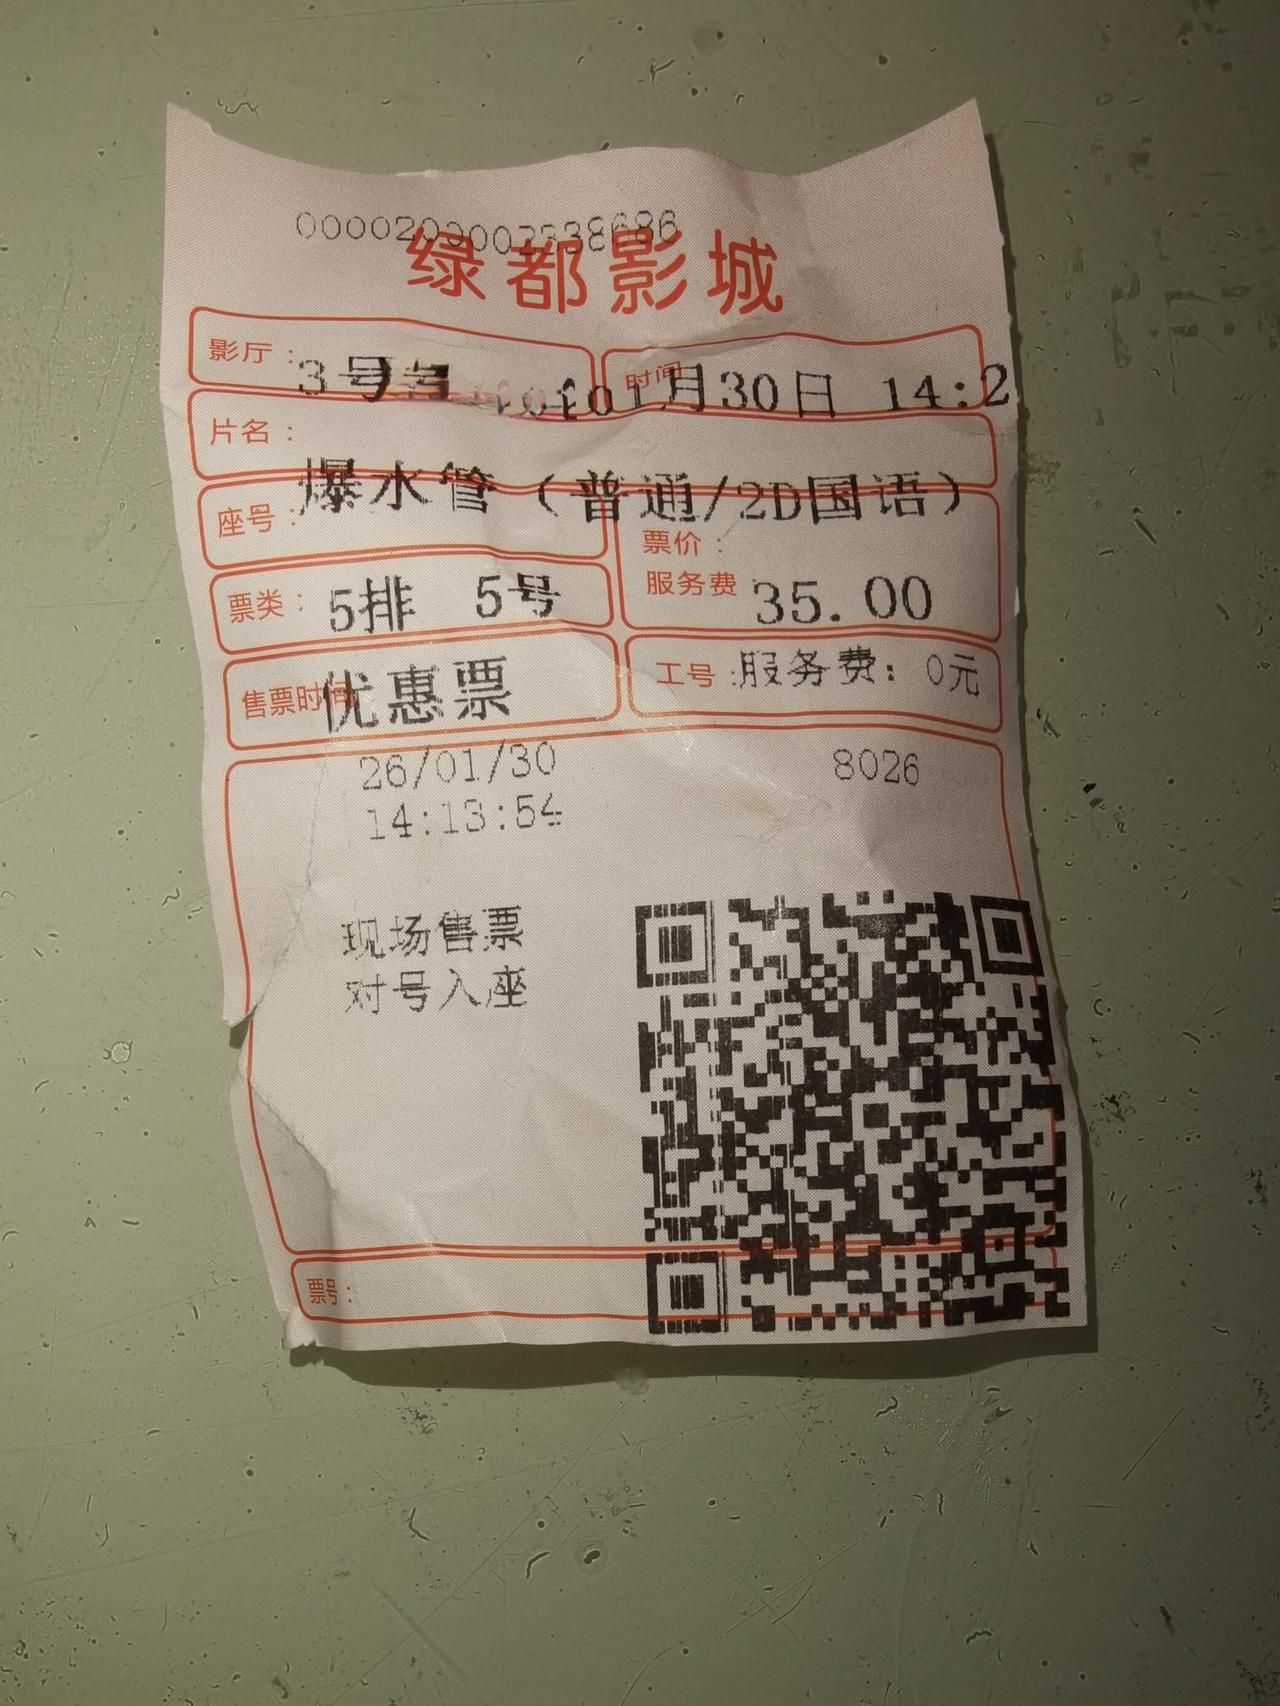 0000200002238686
绿都影城
影厅：
3号
时间
01月30日 14:2
片名：
爆水管（普通/2D国语）
座号：
票价：
服务费：
35.00
票类：
5排 5号
工号：
服务费：0元
售票时间
优惠票
26/01/30
8026
14:13:54
现场售票
对号入座
票号：